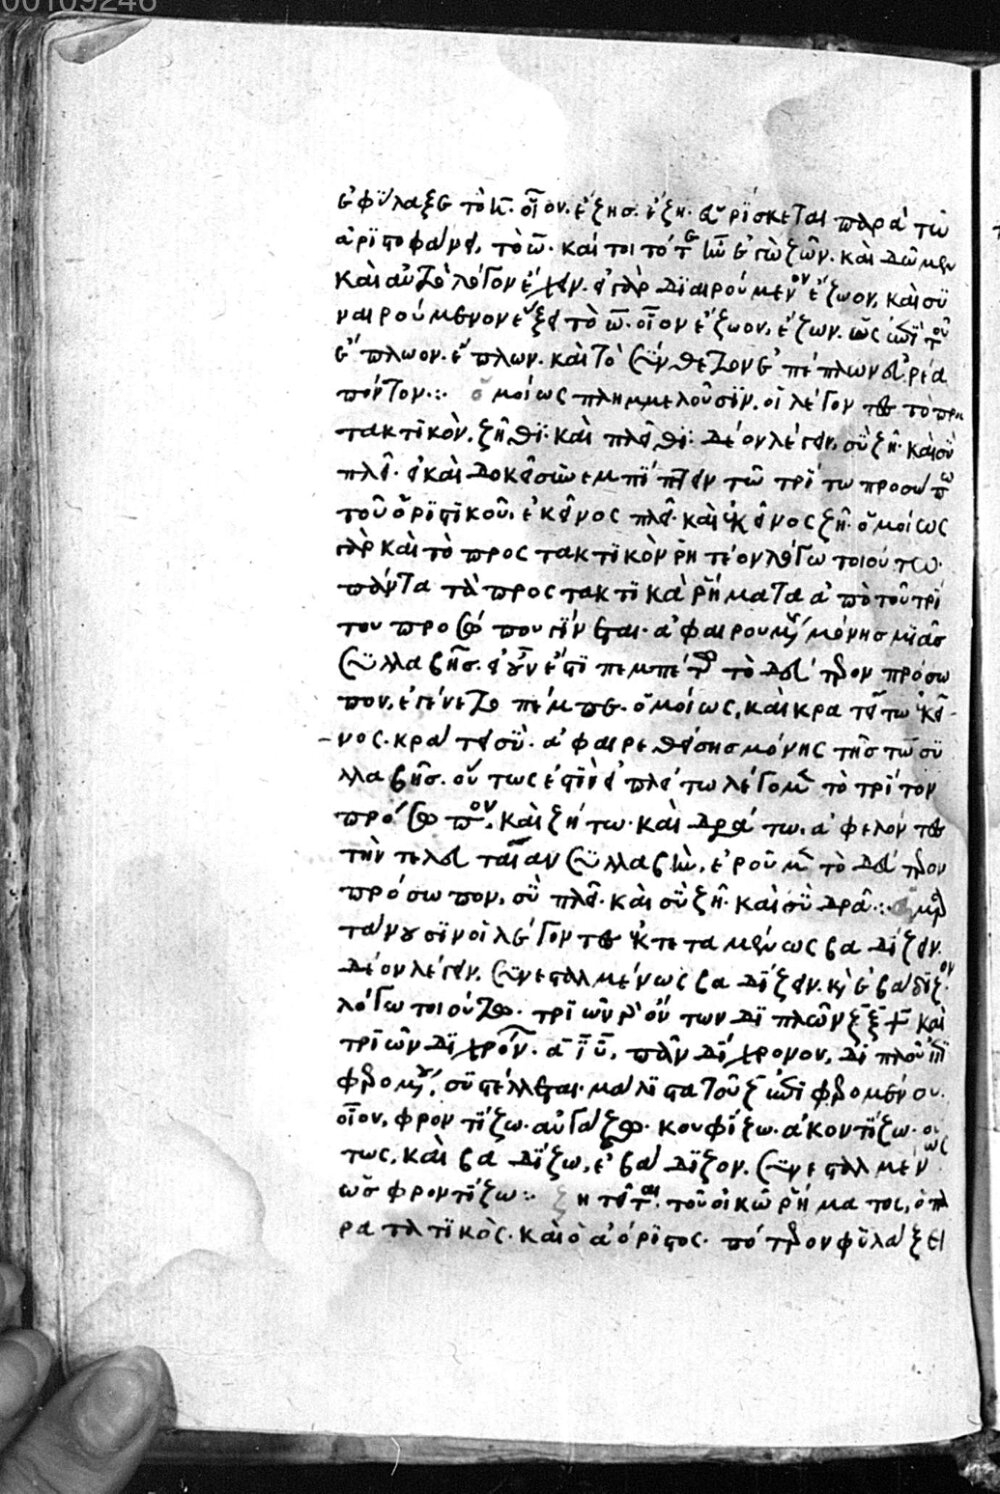 00109246
ἐφύλαξε τὸ η̄. οἷον. ἔζης. ἔζη. εὑρίσκεται παρὰ τῶ
ἀριστοφάνει, τὸ ω̄. καίτοι τότε ἦν ἐγὼ ζῶν. καὶ δῶμεν
καὶ αὐτὸ λόγον ἔχειν. εἰ γὰρ διαιρούμενον ἔζωον, καὶ συ
ναιρούμενον ἕξει τὸ ω̄. οἷον ἔζωον, ἔζων. ὡς ἐπὶ τοῦ
ἔπλωον. ἔπλων. καὶ τὸ σύνθετον ἐπέπλων εὐρέα
πόντον:· ὁμοίως πλημμελοῦσιν, οἱ λέγοντες τὸ προσ
τακτικὸν, ζῆθι· καὶ πλεῖθι· δέον λέγειν, σὺ ζῆ· καὶ σὺ
πλεῖ· εἰ καὶ δοκεῖ συνεμπίπτειν τῶ τρίτω προσώπω
τοῦ ὁριστικοῦ, ἐκεῖνος πλεῖ· καὶ ἐκεῖνος ζῆ· ὁμοίως
γὰρ καὶ τὸ προστακτικὸν ῥητέον λόγω τοιούτω.
πάντα τὰ προστακτικὰ ῥήματα ἀπὸ τοῦ τρί
του προσώπου γίνεται. ἀφαιρουμένης μόνης μιᾶς
συλλαβῆς. εἰ οὖν ἐπὶ πεμπέτω τὸ δεύτερον πρόσω
πον, ἐγένετο πέμπε. ὁμοίως, καὶ κρατείτω ἐκεῖ
νος. κράτει σύ. ἀφαιρεθείσης μόνης τῆς τω συ
λλαβῆς. οὕτως ἐπὶ πλείτω λέγομεν τὸ τρίτον
πρόσωπον. καὶ ζήτω. καὶ δράτω. ἀφελόντες
τὴν τελευταίαν συλλαβὴν, ἐροῦμεν τὸ δεύτερον
πρόσωπον, σὺ πλεῖ. καὶ σὺ ζῆ. καὶ σὺ δρᾶ:· ἁμαρ
τάνουσιν οἱ λέγοντες ἐκτεταμένως βαδίζειν.
δέον λέγειν, συνεσταλμένως βαδίζειν. καὶ ἐβάδιζον
λόγω τοιούτω. τριῶν ὄντων διπλῶν ζ̄ ξ̄ ψ̄ καὶ
τριῶν διχρόνων. ᾱ ῑ ῡ, πᾶν δίχρονον, διπλοῦ ἐπι
φερομένου, συστέλλεται. μάλιστα τοῦ ζ̄ ἐπιφερομένου.
οἷον, φροντίζω. αὐγάζω. κουφίζω. ἀκοντίζω. οὕ
τως, καὶ βαδίζω, ἐβάδιζον. συνεσταλμένως
ὡς φροντίζω:· ζητεῖται. τοῦ οἰκῶ ῥήματος, ὁ πα
ρατατικὸς. καὶ ὁ ἀόριστος. πότερον φυλάξει